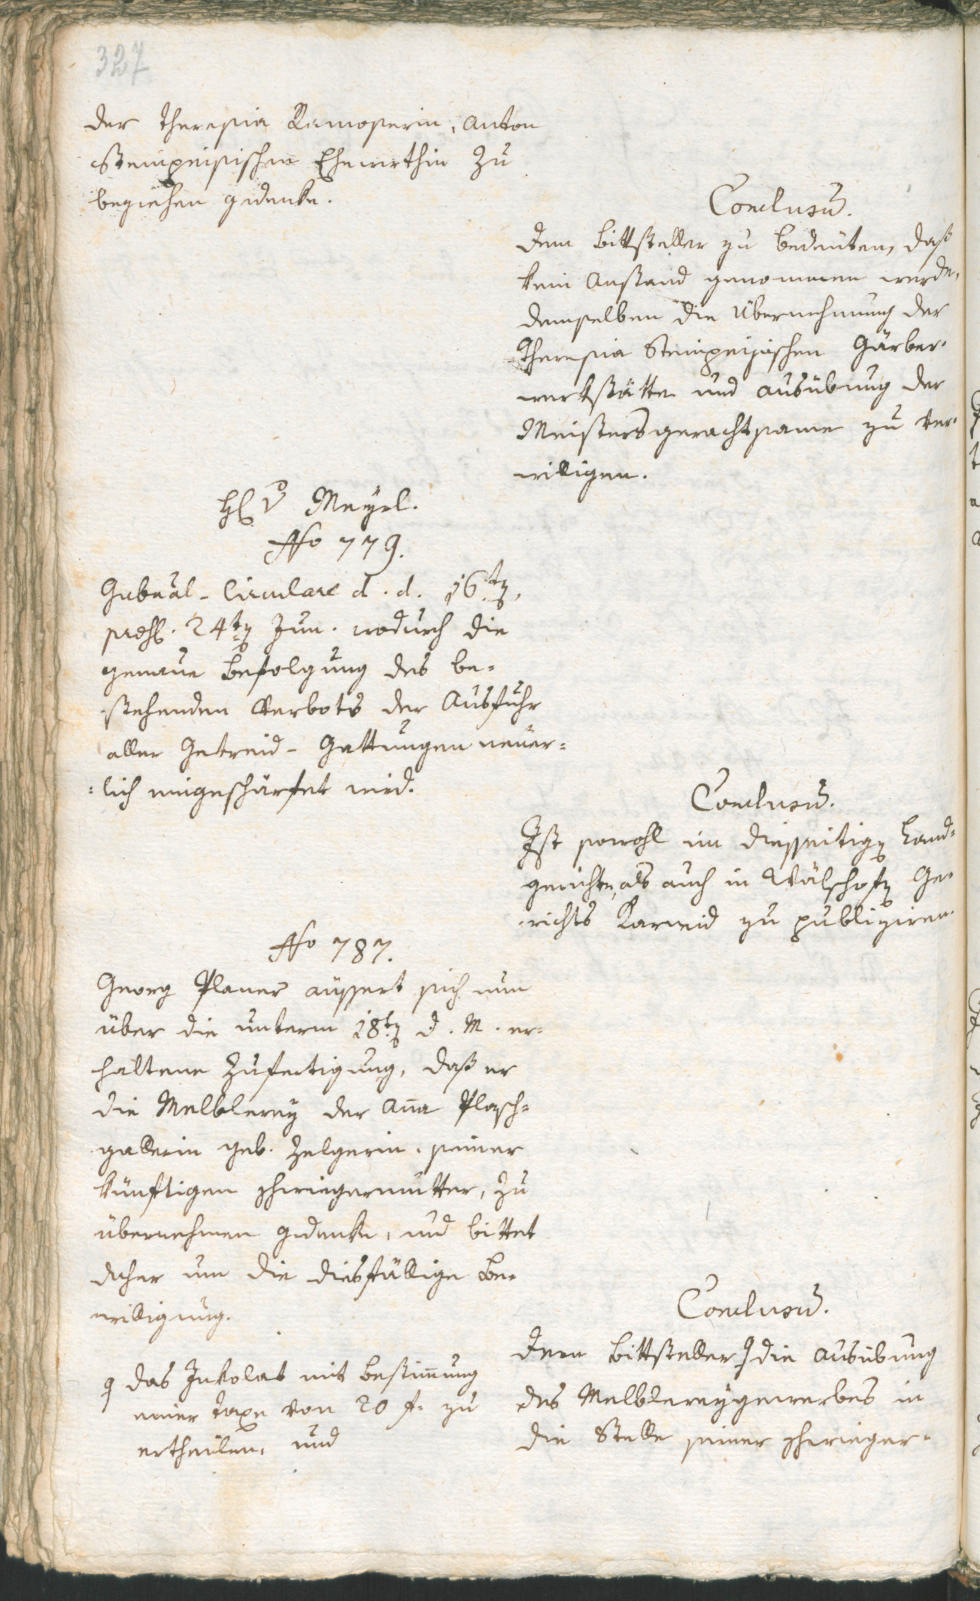 327
der Theresia Ramoserin, Anton
Steinpeisischen Ehewirthin zu
beziehen gedenke.
Conclusũ.
dem Bittsteller zu bedeuten, daß
kein Anstand genommen werde,
demselben die Übernehmung der
Theresia Steinpeisischen Gärber-
werkstätte und Ausübung der
Meistersgerechtsame zu ver-
willigen.
H v Mayrl.
No 779.
Gubeãl-Circulare d. d. 16tẽ,
präs. 24tẽ Jun. wodurch die
genaue Befolgung des be-
stehenden Verbots der Ausfuhr
aller Getreid-Gattungen neuer-
lich eingeschärfet wird.
Conclusũ.
Ist sowohl im diesseitigẽ Land-
gerichte, als auch in Wälschofẽ Ge-
richts Karneid zu publiziren.
No 787.
Georg Planer äussert sich nun
über die unterm 18tẽ d. M. er-
haltene Zufertigung, daß er
die Melblerey der Aña Plasch-
gallerin geb. Zelgerin, seiner
künftigen Schwiegermutter, zu
übernehmen gedenke, und bittet
daher um die diesfällige Be-
willigung.
Conclusũ.
Dem Bittsteller die Ausübung
des Melblereygewerbes in
die Stelle seiner Schwieger-
das Inkolat mit Bestim̄ung
einer Taxe von 20 f. zu
ertheilen, und